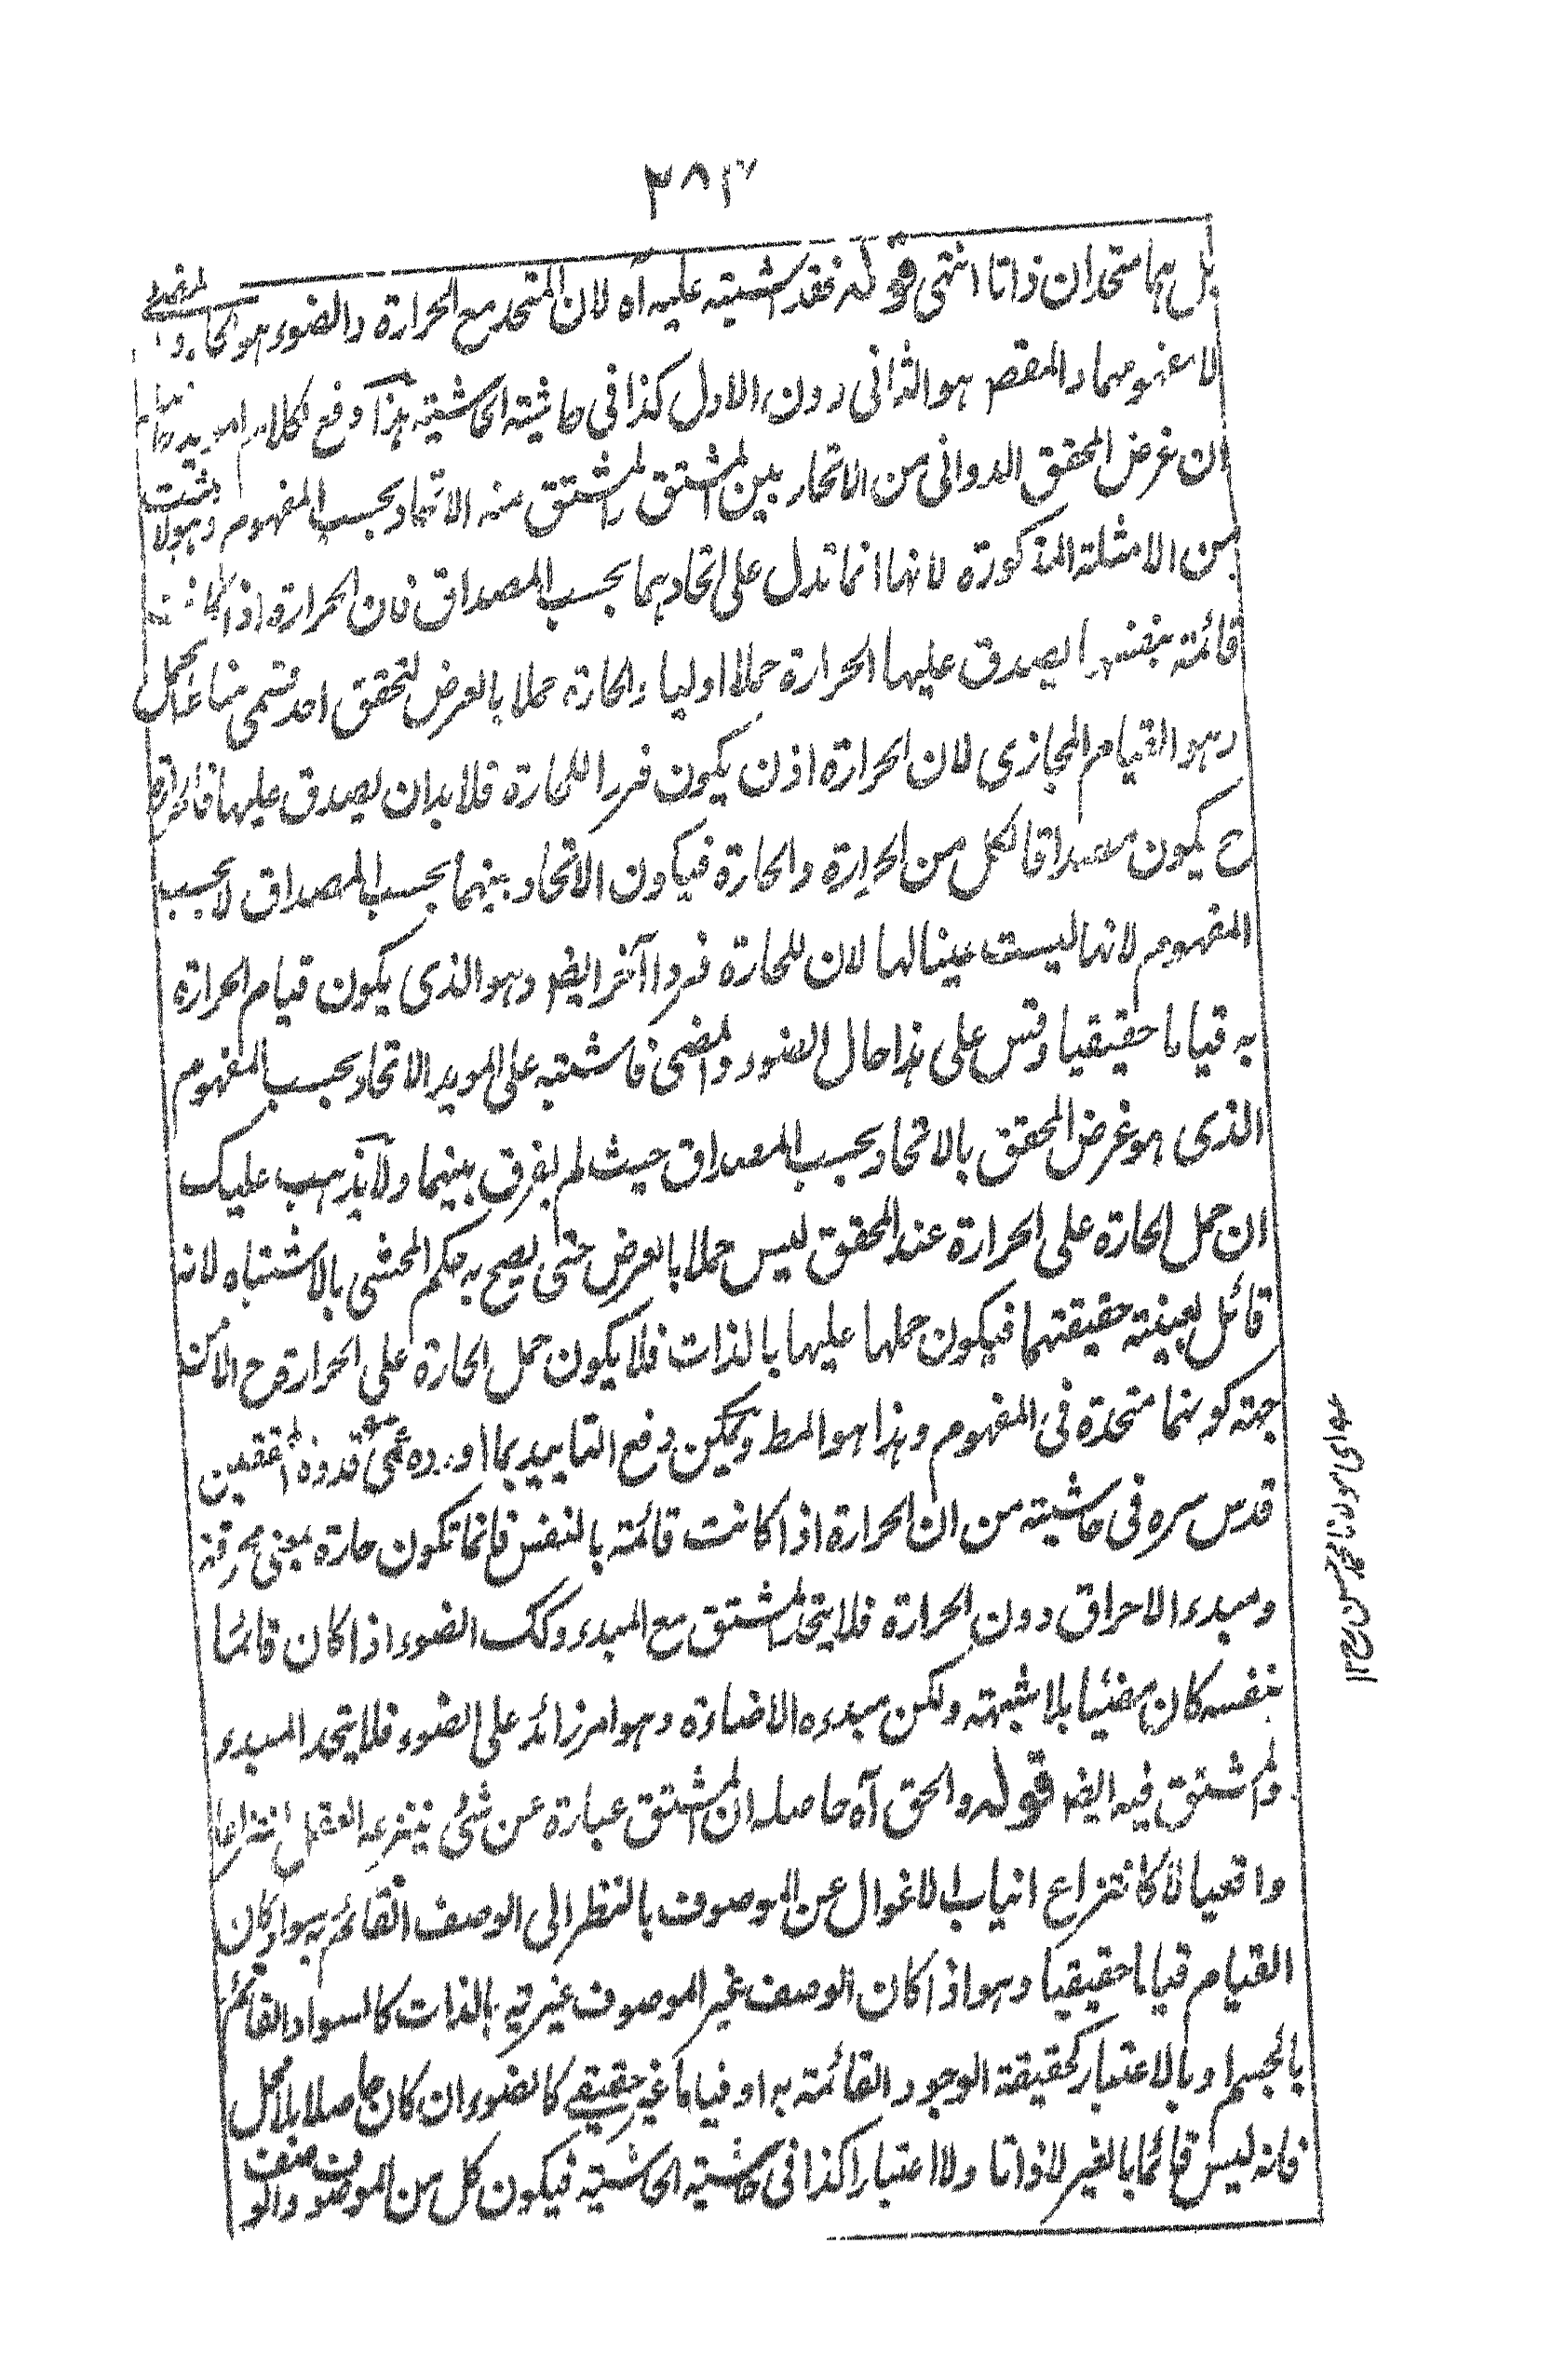 بل هما متحدان ذاتا انتهى قوله فقد اشتبه عليه آه لان المتحد مع الحرارة والضوء هو الحار و المضئ
لا مفهومهما والمقص هو الثانى دون الاول كذا فى حاشية الحاشية هذا دفع لكلام المويد
ان غرض المحقق الدوانى من الاتحاد بين المشتق والمشتق منه الاتحاد بحسب المفهوم وهو لا يثبت
من الامثلة المذكورة لانها انما تدل على اتحادهما بحسب المصداق فان الحرارة اذا كانت
قائمة بنفسها يصدق عليها الحرارة حملا اوليا والحارة حملا بالعرض لتحقق احد قسمى مناط الحمل
وهو القيام المجازى لان الحرارة اذن يكون فردا للحارة فلا بد ان يصدق عليها
ح يكون مصداقا لكل من الحرارة والحارة فيكون الاتحاد بينهما بحسب المصداق لا بحسب
المفهوم لانها ليست عينا لها لان للحارة فردا آخر ايضا وهو الذى يكون قيام الحرارة
به قياما حقيقيا وقس على هذا حال الضوء والمضئ فاشتبه على المويد الاتحاد بحسب المفهوم
الذى هو غرض المحقق بالاتحاد بحسب المصداق حيث لم يفرق بينهما ولا يذهب عليك
ان حمل الحارة على الحرارة عند المحقق ليس حملا بالعرض حتى يصح به حكم المحشى بالاشتباه لانه
قائل بعينية حقيقتهما فيكون حملها عليها بالذات فلا يكون حمل الحارة على الحرارة ح الا من
جهة كونهما متحدة فى المفهوم وهذا هو المط ويمكن دفع التاييد بما اورده عمى قدوة المحققين
قدس سره فى حاشيته من ان الحرارة اذا كانت قائمة بالنفس فانما تكون حارة بمعنى محرقة
ومبدء الاحراق دون الحرارة فلا يتحد المشتق مع المبدء وكك الضوء اذا كان قائما
بنفسه كان مضيئا بلا شبهة ولكن مبدءه الاضاءة وهو امر زائد على الضوء فلا يتحد المبدء
والمشتق فيه ايضا قوله والحق آه حاصله ان المشتق عبارة عن شئ ينتزعه العقل انتزاعا
واقعيا لا كانتزاع انياب الاغوال عن الموصوف بالنظر الى الوصف القائم به سواء كان
القيام قياما حقيقيا وهو اذا كان الوصف غير الموصوف غيرية بالذات كالسواد القائم
بالجسم او بالاعتبار كحقيقة الوجود القائمة به او قياما غير حقيقى كالضوء ان كان حاصلا بلا محل
فانه ليس قائما بالغير لا ذاتا ولا اعتبارا كذا فى حاشية الحاشية فيكون كل من الموصوف والوصف